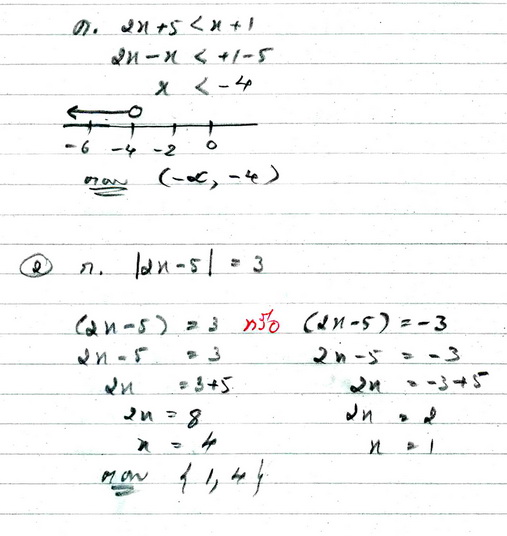 ก. 2x+5 < x+1
2x-x < +1-5
x < -4
-6 -4 -2 0
ตอบ (-∞, -4)
② ก. |2x-5| = 3
(2x-5) = 3 หรือ (2x-5) = -3
2x-5 = 3 2x-5 = -3
2x = 3+5 2x = -3+5
2x = 8 2x = 2
x = 4 x = 1
ตอบ {1, 4}